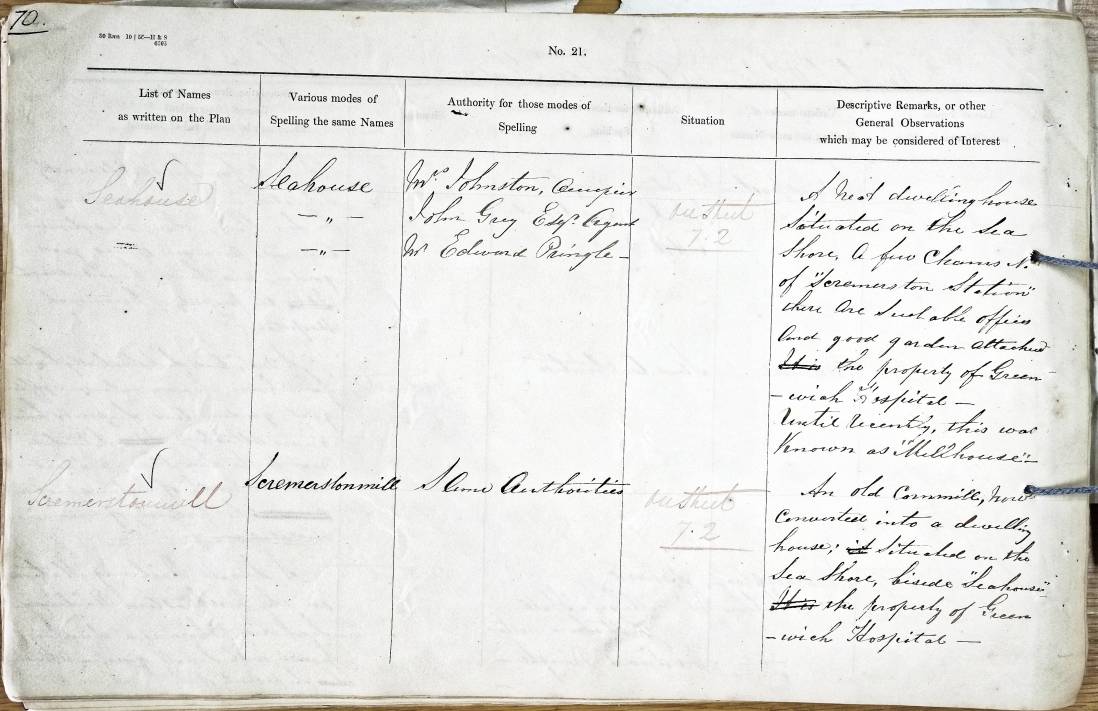 70.
No. 21.
List of Names
as written on the Plan
Various modes of
Spelling the same Names
Authority for those modes of
Spelling
Situation
Descriptive Remarks, or other
General Observations
which may be considered of Interest
Seahouse
Seahouse
— „ —
— „ —
Mrs Johnston, Occupier
John Grey Esqr. Agent
Mr Edward Pringle —
on Sheet
7.2
A Neat dwelling house
Situated on the Sea
Shore, A few Chains N.
of "Scremerston Station"
there are Suitable offices
And good garden attached
It is the property of Green
-wich Hospital —
Until recently, this was
Known as "Millhouse" —
Scremerstonmill
Scremerstonmill
Same Authorities
on Sheet
7.2
An old Cornmill, Now
Converted into a dwelling
house; is Situated on the
Sea Shore, beside "Seahouse"
It is the property of Green
-wich Hospital —